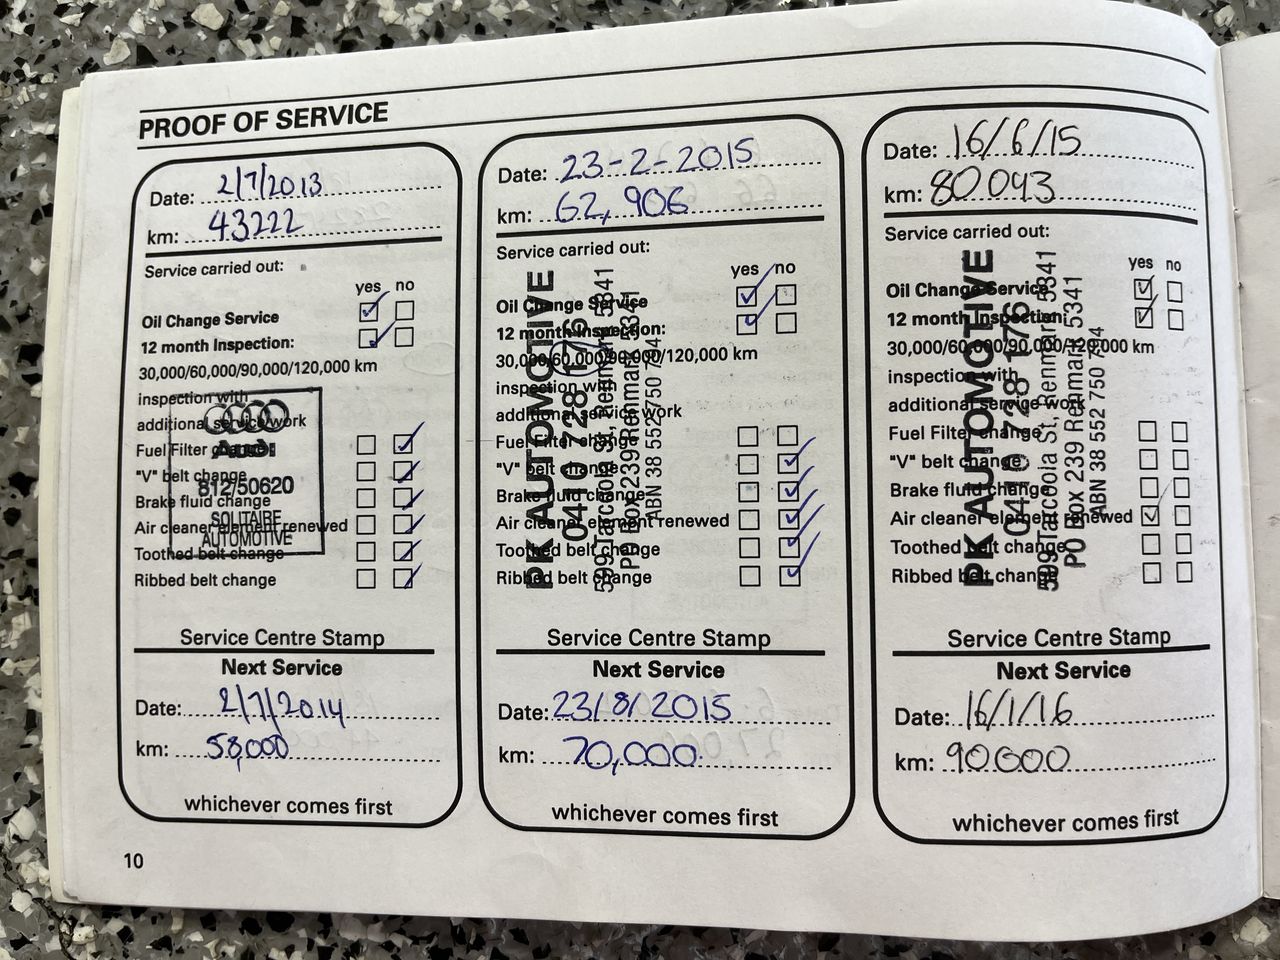 PROOF OF SERVICE
Date: 2/7/2013
km: 43222
Service carried out:
yes no
Oil Change Service
12 month Inspection:
30,000/60,000/90,000/120,000 km
inspection with
additional service work
Fuel Filter change
"V" belt change
Brake fluid change
Air cleaner element renewed
Toothed belt change
Ribbed belt change
Audi
812/50620
SOLITAIRE
AUTOMOTIVE
Service Centre Stamp
Next Service
Date: 2/7/2014
km: 58,000
whichever comes first
Date: 23-2-2015
km: 62,906
Service carried out:
yes no
Oil Change Service
12 month Inspection:
30,000/60,000/90,000/120,000 km
inspection with
additional service work
Fuel Filter change
"V" belt change
Brake fluid change
Air cleaner element renewed
Toothed belt change
Ribbed belt change
PK AUTOMOTIVE
0410 728 176
599 Tarcoola St, Renmark 5341
PO Box 239 Renmark 5341
ABN 38 552 750 744
Service Centre Stamp
Next Service
Date: 23/8/2015
km: 70,000
whichever comes first
Date: 16/6/15
km: 80093
Service carried out:
yes no
Oil Change Service
12 month Inspection:
30,000/60,000/90,000/120,000 km
inspection with
additional service work
Fuel Filter change
"V" belt change
Brake fluid change
Air cleaner element renewed
Toothed belt change
Ribbed belt change
PK AUTOMOTIVE
0410 728 176
599 Tarcoola St, Renmark 5341
PO Box 239 Renmark 5341
ABN 38 552 750 744
Service Centre Stamp
Next Service
Date: 16/1/16
km: 90000
whichever comes first
10